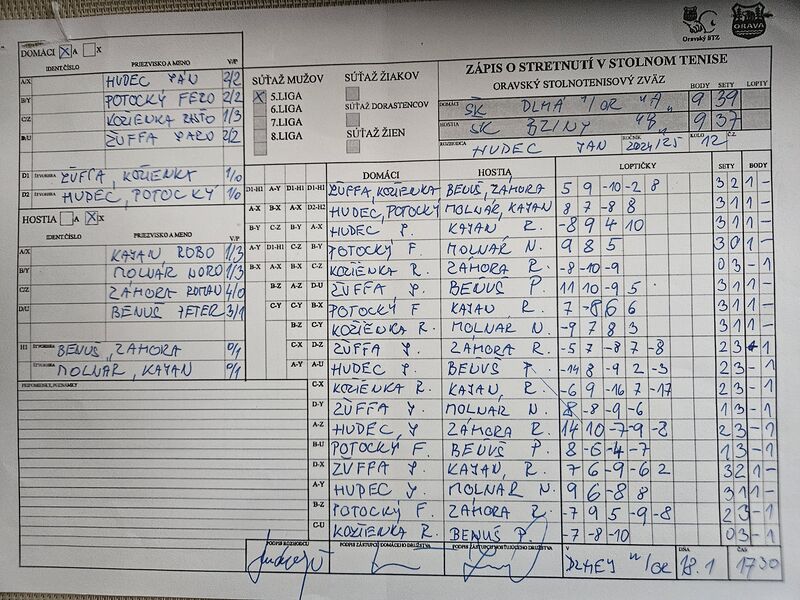 Oravský STZ
ORAVA
DOMÁCI X A X
IDENT.ČÍSLO PRIEZVISKO A MENO V/P
A/X HUDEC JÁN 2/2
B/Y POTOCKÝ FERO 2/2
C/Z KOZIENKA RASTO 1/3
D/U ŽUFFA JARO 2/2
D1 ŠTVORHRA ŽUFFA, KOZIENKA 1/0
D2 ŠTVORHRA HUDEC, POTOCKÝ 1/0
HOSTIA A X X
IDENT.ČÍSLO PRIEZVISKO A MENO V/P
A/X KAJAN ROBO 1/3
B/Y MOLNÁR NORO 1/3
C/Z ZÁMORA ROMAN 4/0
D/U BENUŠ PETER 3/1
H1 ŠTVORHRA BENUŠ, ZÁMORA 0/1
ŠTVORHRA MOLNÁR, KAJAN 0/1
PRIPOMIENKY, POZNÁMKY
SÚŤAŽ MUŽOV
X 5.LIGA
6.LIGA
7.LIGA
8.LIGA
SÚŤAŽ ŽIAKOV
SÚŤAŽ DORASTENCOV
SÚŤAŽ ŽIEN
ZÁPIS O STRETNUTÍ V STOLNOM TENISE
ORAVSKÝ STOLNOTENISOVÝ ZVÄZ BODY SETY LOPTY
DOMÁCI ŠK DLHÁ N/OR "A" 9 39
HOSTIA ŠK BZINY "B" 9 37
ROZHODCA HUDEC JÁN ROČNÍK 2024/25 KOLO 12 Č.Z.
DOMÁCI HOSTIA LOPTIČKY SETY BODY
D1-H1 A-Y D1-H1 D1-H1 ŽUFFA, KOZIENKA BENUŠ, ZÁMORA 5 9 -10 -2 8 3 2 1 -
A-X B-X A-X D2-H2 HUDEC, POTOCKÝ MOLNÁR, KAJAN 8 7 -8 8 3 1 1 -
B-Y C-Z B-Y A-X HUDEC J. KAJAN R. -8 9 4 10 3 1 1 -
A-Y D1-H1 C-Z B-Y POTOCKÝ F. MOLNÁR N. 9 8 5 3 0 1 -
B-X A-X B-X C-Z KOZIENKA R. ZÁMORA R. -8 -10 -9 0 3 - 1
B-Z A-Z D-U ŽUFFA J. BENUŠ P. 11 10 -9 5 3 1 1 -
C-Y C-Y B-X POTOCKÝ F. KAJAN R. 7 -8 6 6 3 1 1 -
B-Z C-Y KOZIENKA R. MOLNÁR N. -9 7 8 3 3 1 1 -
C-X D-Z ŽUFFA J. ZÁMORA R. -5 7 -8 7 -8 2 3 - 1
A-Y A-U HUDEC J. BENUŠ P. -14 8 -9 2 -3 2 3 - 1
C-X KOZIENKA R. KAJAN, R. -6 9 -16 7 -17 2 3 - 1
D-Y ŽUFFA J. MOLNÁR N. 8 -8 -9 -6 1 3 - 1
A-Z HUDEC, J ZÁMORA R. 14 10 -7 -9 -8 2 3 - 1
B-U POTOCKÝ F. BENUŠ P. 8 -6 -4 -7 1 3 - 1
D-X ŽUFFA J. KAJAN, R. 7 6 -9 -6 2 3 2 1 -
A-Y HUDEC J. MOLNÁR N. 9 6 -8 8 3 1 1 -
B-Z POTOCKÝ F. ZÁMORA R. -7 9 5 -9 -8 2 3 - 1
C-U KOZIENKA R. BENUŠ P. -7 -8 -10 0 3 - 1
PODPIS ROZHODCU PODPIS ZÁSTUPCU DOMÁCEHO DRUŽSTVA PODPIS ZÁSTUPCU HOSŤUJÚCEHO DRUŽSTVA V DLHEJ N/OR DŇA 18.1 ČAS 17 30